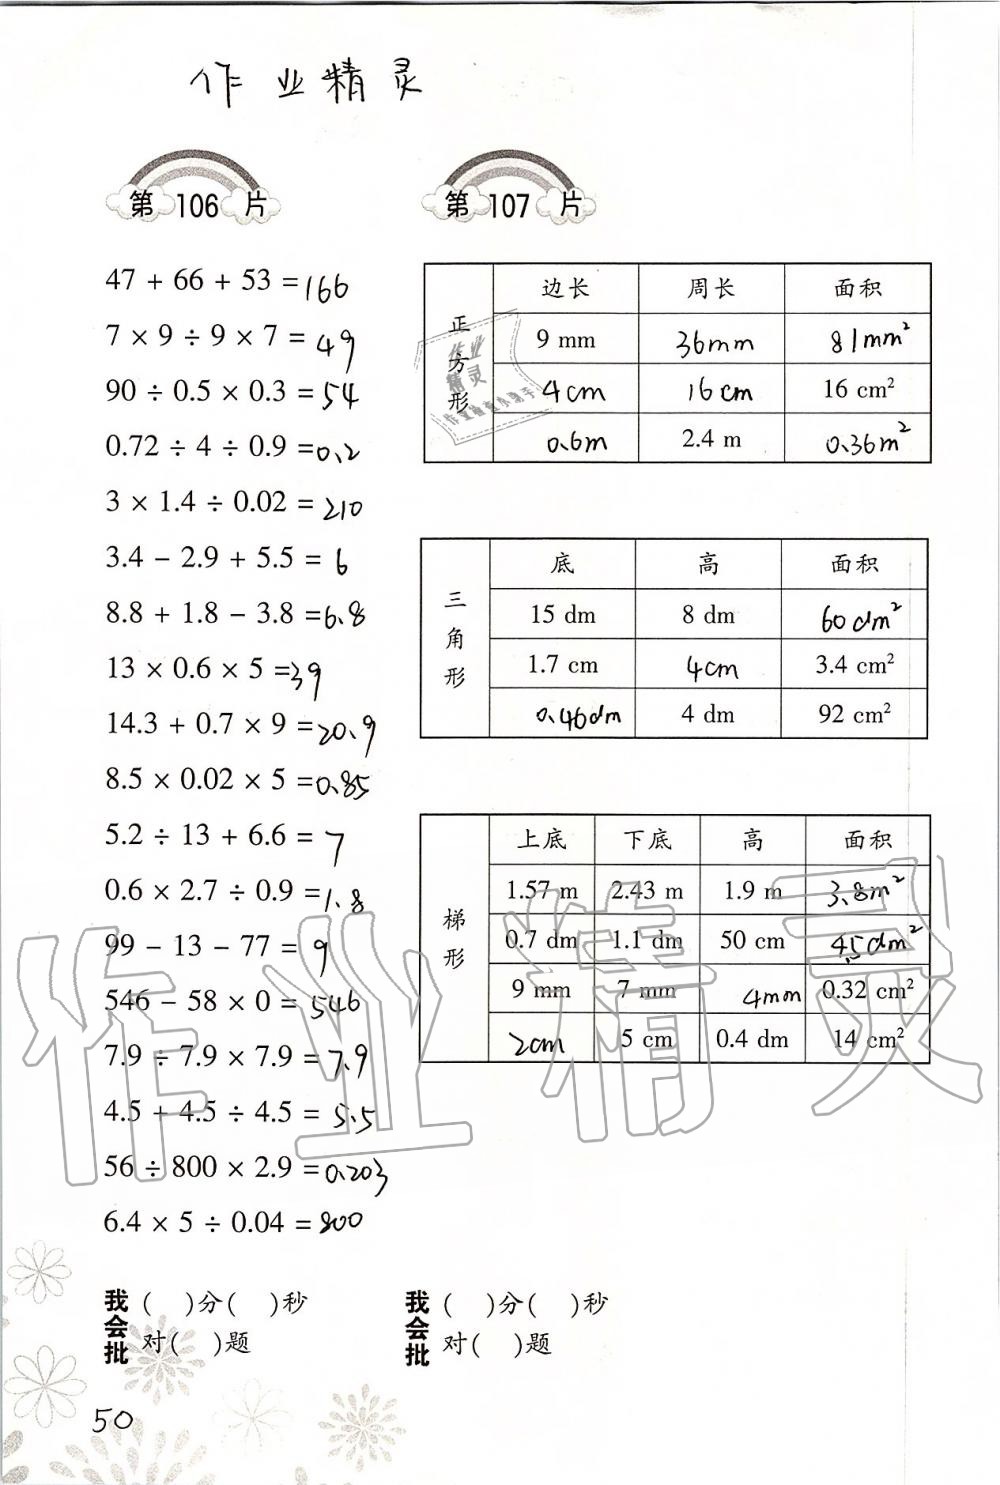 作业精灵
第 106 片
47 + 66 + 53 = 166
7 × 9 ÷ 9 × 7 = 49
90 ÷ 0.5 × 0.3 = 54
0.72 ÷ 4 ÷ 0.9 = 0.2
3 × 1.4 ÷ 0.02 = 210
3.4 − 2.9 + 5.5 = 6
8.8 + 1.8 − 3.8 = 6.8
13 × 0.6 × 5 = 39
14.3 + 0.7 × 9 = 20.9
8.5 × 0.02 × 5 = 0.85
5.2 ÷ 13 + 6.6 = 7
0.6 × 2.7 ÷ 0.9 = 1.8
99 − 13 − 77 = 9
546 − 58 × 0 = 546
7.9 ÷ 7.9 × 7.9 = 7.9
4.5 + 4.5 ÷ 4.5 = 5.5
56 ÷ 800 × 2.9 = 0.203
6.4 × 5 ÷ 0.04 = 800
我会批
( )分( )秒
对( )题
第 107 片
正方形
边长 周长 面积
9 mm 36mm 81mm²
4cm 16cm 16 cm²
0.6m 2.4 m 0.36m²
作业
精灵
三角形
底 高 面积
15 dm 8 dm 60dm²
1.7 cm 4cm 3.4 cm²
0.46dm 4 dm 92 cm²
梯形
上底 下底 高 面积
1.57 m 2.43 m 1.9 m 3.8m²
0.7 dm 1.1 dm 50 cm 4.5dm²
9 mm 7 mm 4mm 0.32 cm²
2cm 5 cm 0.4 dm 14 cm²
我会批
( )分( )秒
对( )题
作业精灵
50